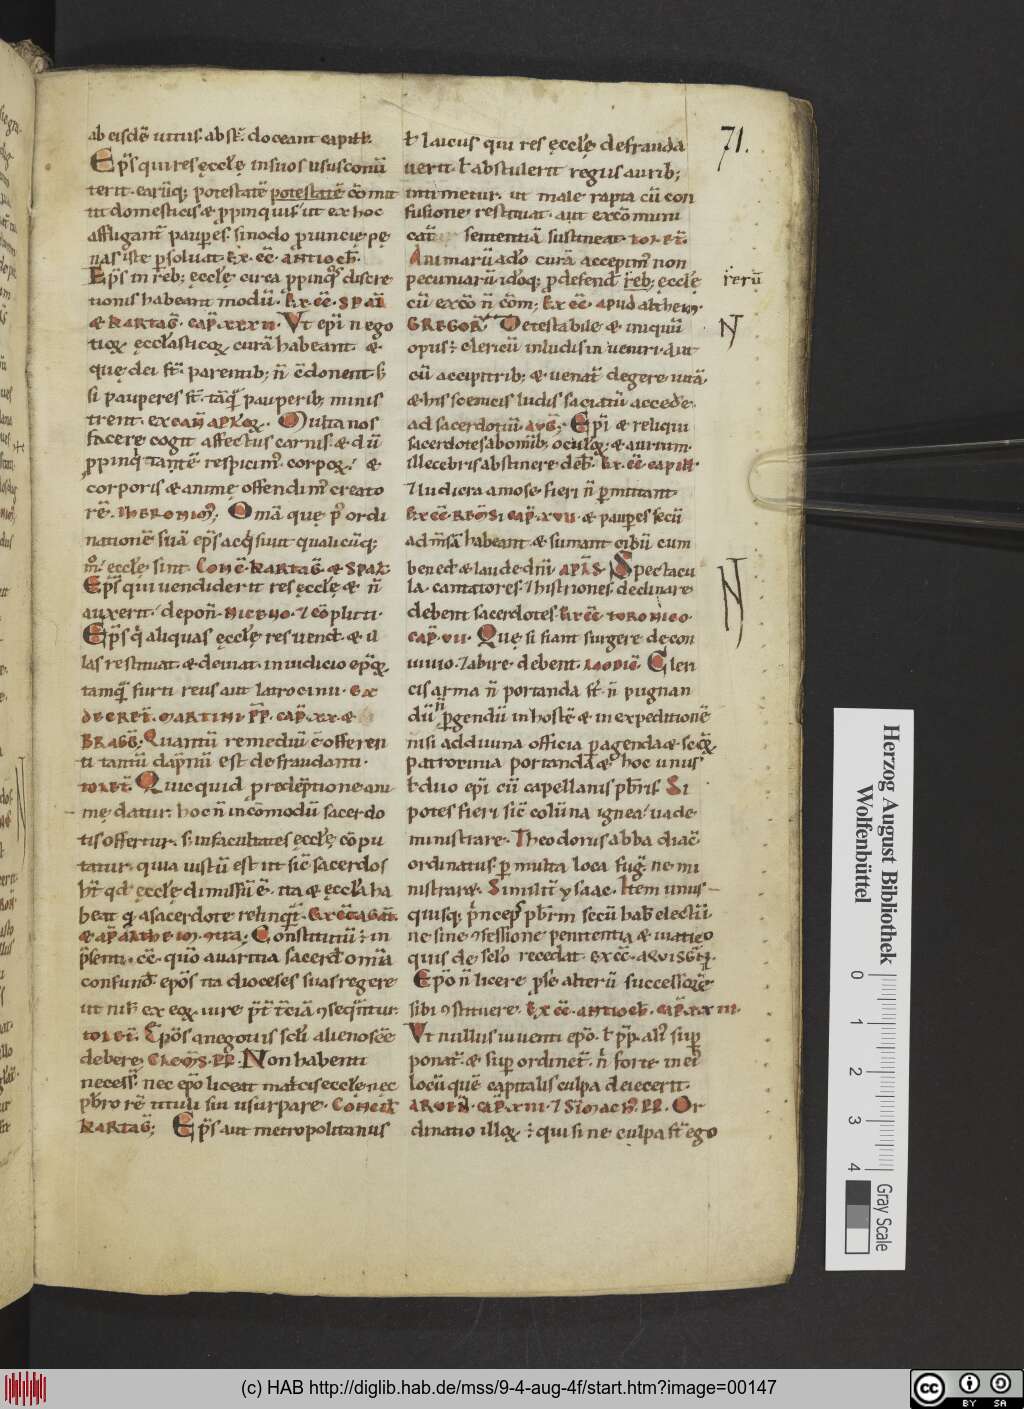 ab eisdē uttiꝰ abst̄. doceant capitt̄.
Ep̄s qui res ęccłę in suos usus conū
terit. earūq; potestatē potestatē cōmit
tit domesticis & ꝓpinquis ut ex hoc
affligant̄ pauperes. sinodo ꝓuincię pę
nas iste ꝑsoluat. Ex. cc̄. antioch̄.
Ep̄s in reb; ęccłę circa ꝓpinq̊s discre
tionis habeant modū.
& kartaḡ. cap̄. xxxii. Vt ep̄i nego
tioꝝ ęccłasticoꝝ curā habeant. &
quę dei st̄. parentib; n̄ c̄donent. s;
si pauperes st̄. tāq̄ pauperib; minis
trent. ex can̄ apłoꝝ. Multa nos
facere cogit affectus carnis. & dū
ꝓpinq̇tatē respicimꝰ corpoꝝ. &
corporis & animę offendimꝰ creato
rē. Iheronimꝰ. Omā quę p̄ ordi
nationē suā ep̄s acq̇siuit qualicūq;
m̊. ęccłę sint. Conc̄. kartaḡ. &
Ep̄s qui uendiderit res ęccłę & n̄
auxerit. depon̄.
Ep̄s q̇ aliquas ęccłę res uend̄. & il
las restituat. & deiciat. in iudicio ep̄oꝝ
tamq̄ furti reus aut latrocinii. ex
decret̄. martini pp̄. cap̄. xx. &
Bragę. Quantū remediū ē offeren
ti tantū dāp̄nū est defraudanti.
tolet̄. Quicquid ꝓ redēptione ani
mę datur. hoc n̄ incōmodū sacerdo
tis offertur. s; in facultates ęccłę cōpu
tatur. quia iustū est ut sic̄ sacerdos
ht̄ qd̄ ęccłę dimissū ē. ita & ęccła ha
beat q̇ a sacerdote relinqt̄.
Constitutū ÷ in
p̄senti. cc̄. quō auaritia sacerd̄ omā
confund̄. ep̄os ita dioceses suas regere
ut nih̄ ex eoꝝ iure p̄t t̄ciā ꝯseq̄ntur.
tolet̄. Ep̄os q̇ negociis scłi alienos eē
debere. Clem̄s. pp̄. Non habenti
necess̄. nec ep̄o liceat matricis ęccłę nec
pb̄ro rē tituli sui usurpare. Concił
kartaḡ; Ep̄s aut metropolitanus
ł laicus qui res ęccłę defrauda
uerit. ł abstulerit regiis aurib;
intimetur. ut male rapta cū con
fusione restituat. aut excōmuni
cat̄ sententiā sustineat. tolet̄.
Animarū ad̊ curā accepimꝰ non
pecuniarū. id̊q; ꝓ defend̄ reb; ęccłę
rerū
cū excō n̄ cōm; Ex cc̄. apud altheim.
Gregor̄. Detestabile & iniquū
opus ÷ clericū in ludis inueniri. aut
cū accipitrib; & uenat̄ degere uitā.
& his scenicis ludis saciatū accede
ad sacerdotiū. aug̃. Ep̄i & reliqui
sacerdotes ab omīb; oculoꝝ & aurium
illecebris abstinere deb̄. Ex. cc̄. capitt̄.
⁊ ludicra amose fieri n̄ permittant
Ex cc̄ Rem̄si cap̄. xvii. & pauperes secū
ad m̄sā habeant & sumant cibū cum
bened̄. & laude dn̄i. Spectacu
la. cantatores. ⁊ histriones. declinare
debent sacerdotes. Ex cc̄ turonico
cap̄. vii. Quę si fiant surgere de con
uiuio. ⁊ abire debent. Cleri
cis arma n̄ portanda st̄. n̄ pugnan
dū n̄ ꝑgendū in hostē & in expeditionē
nisi ad diuina officia ꝑagenda &
patrocinia portanda & hoc unus
ł duo ep̄i cū capellanis pb̄ris. Si
potes fieri sic̄ colūna ignea. uade
ministrare. Theodorus abba diac̄
ordinatus. per multa loca fug̃. ne mi
nistraret. Similit̄ ysaac. Item unus
quisq; p̄nceps pb̄rm secū hab̄ electū
ne sine ꝯfessione penitentia & uiatico
quis de scło recedat. Ex cc̄. aquisgr̄.
Ep̄o n̄ licere ꝓ se alterū successorē
sibi ꝯstituere. Ex cc̄. antioch̄. cap̄. xxiii.
Vt nullus uiuenti ep̄o. ł pp̄. aliꝰ suꝑ
ponat̄. & suꝑ ordinet̄. n̄ forte in ei
locū quē capitalis culpa deiecerit.
cap̄. xiii. ⁊ Simachꝰ. pp̄. Or
dinatio illoꝝ ÷ qui sine culpa st̄ ego
71.
Herzog August Bibliothek
Wolfenbüttel
0 1 2 3 4
Gray Scale
(c) HAB http://diglib.hab.de/mss/9-4-aug-4f/start.htm?image=00147
cc BY SA